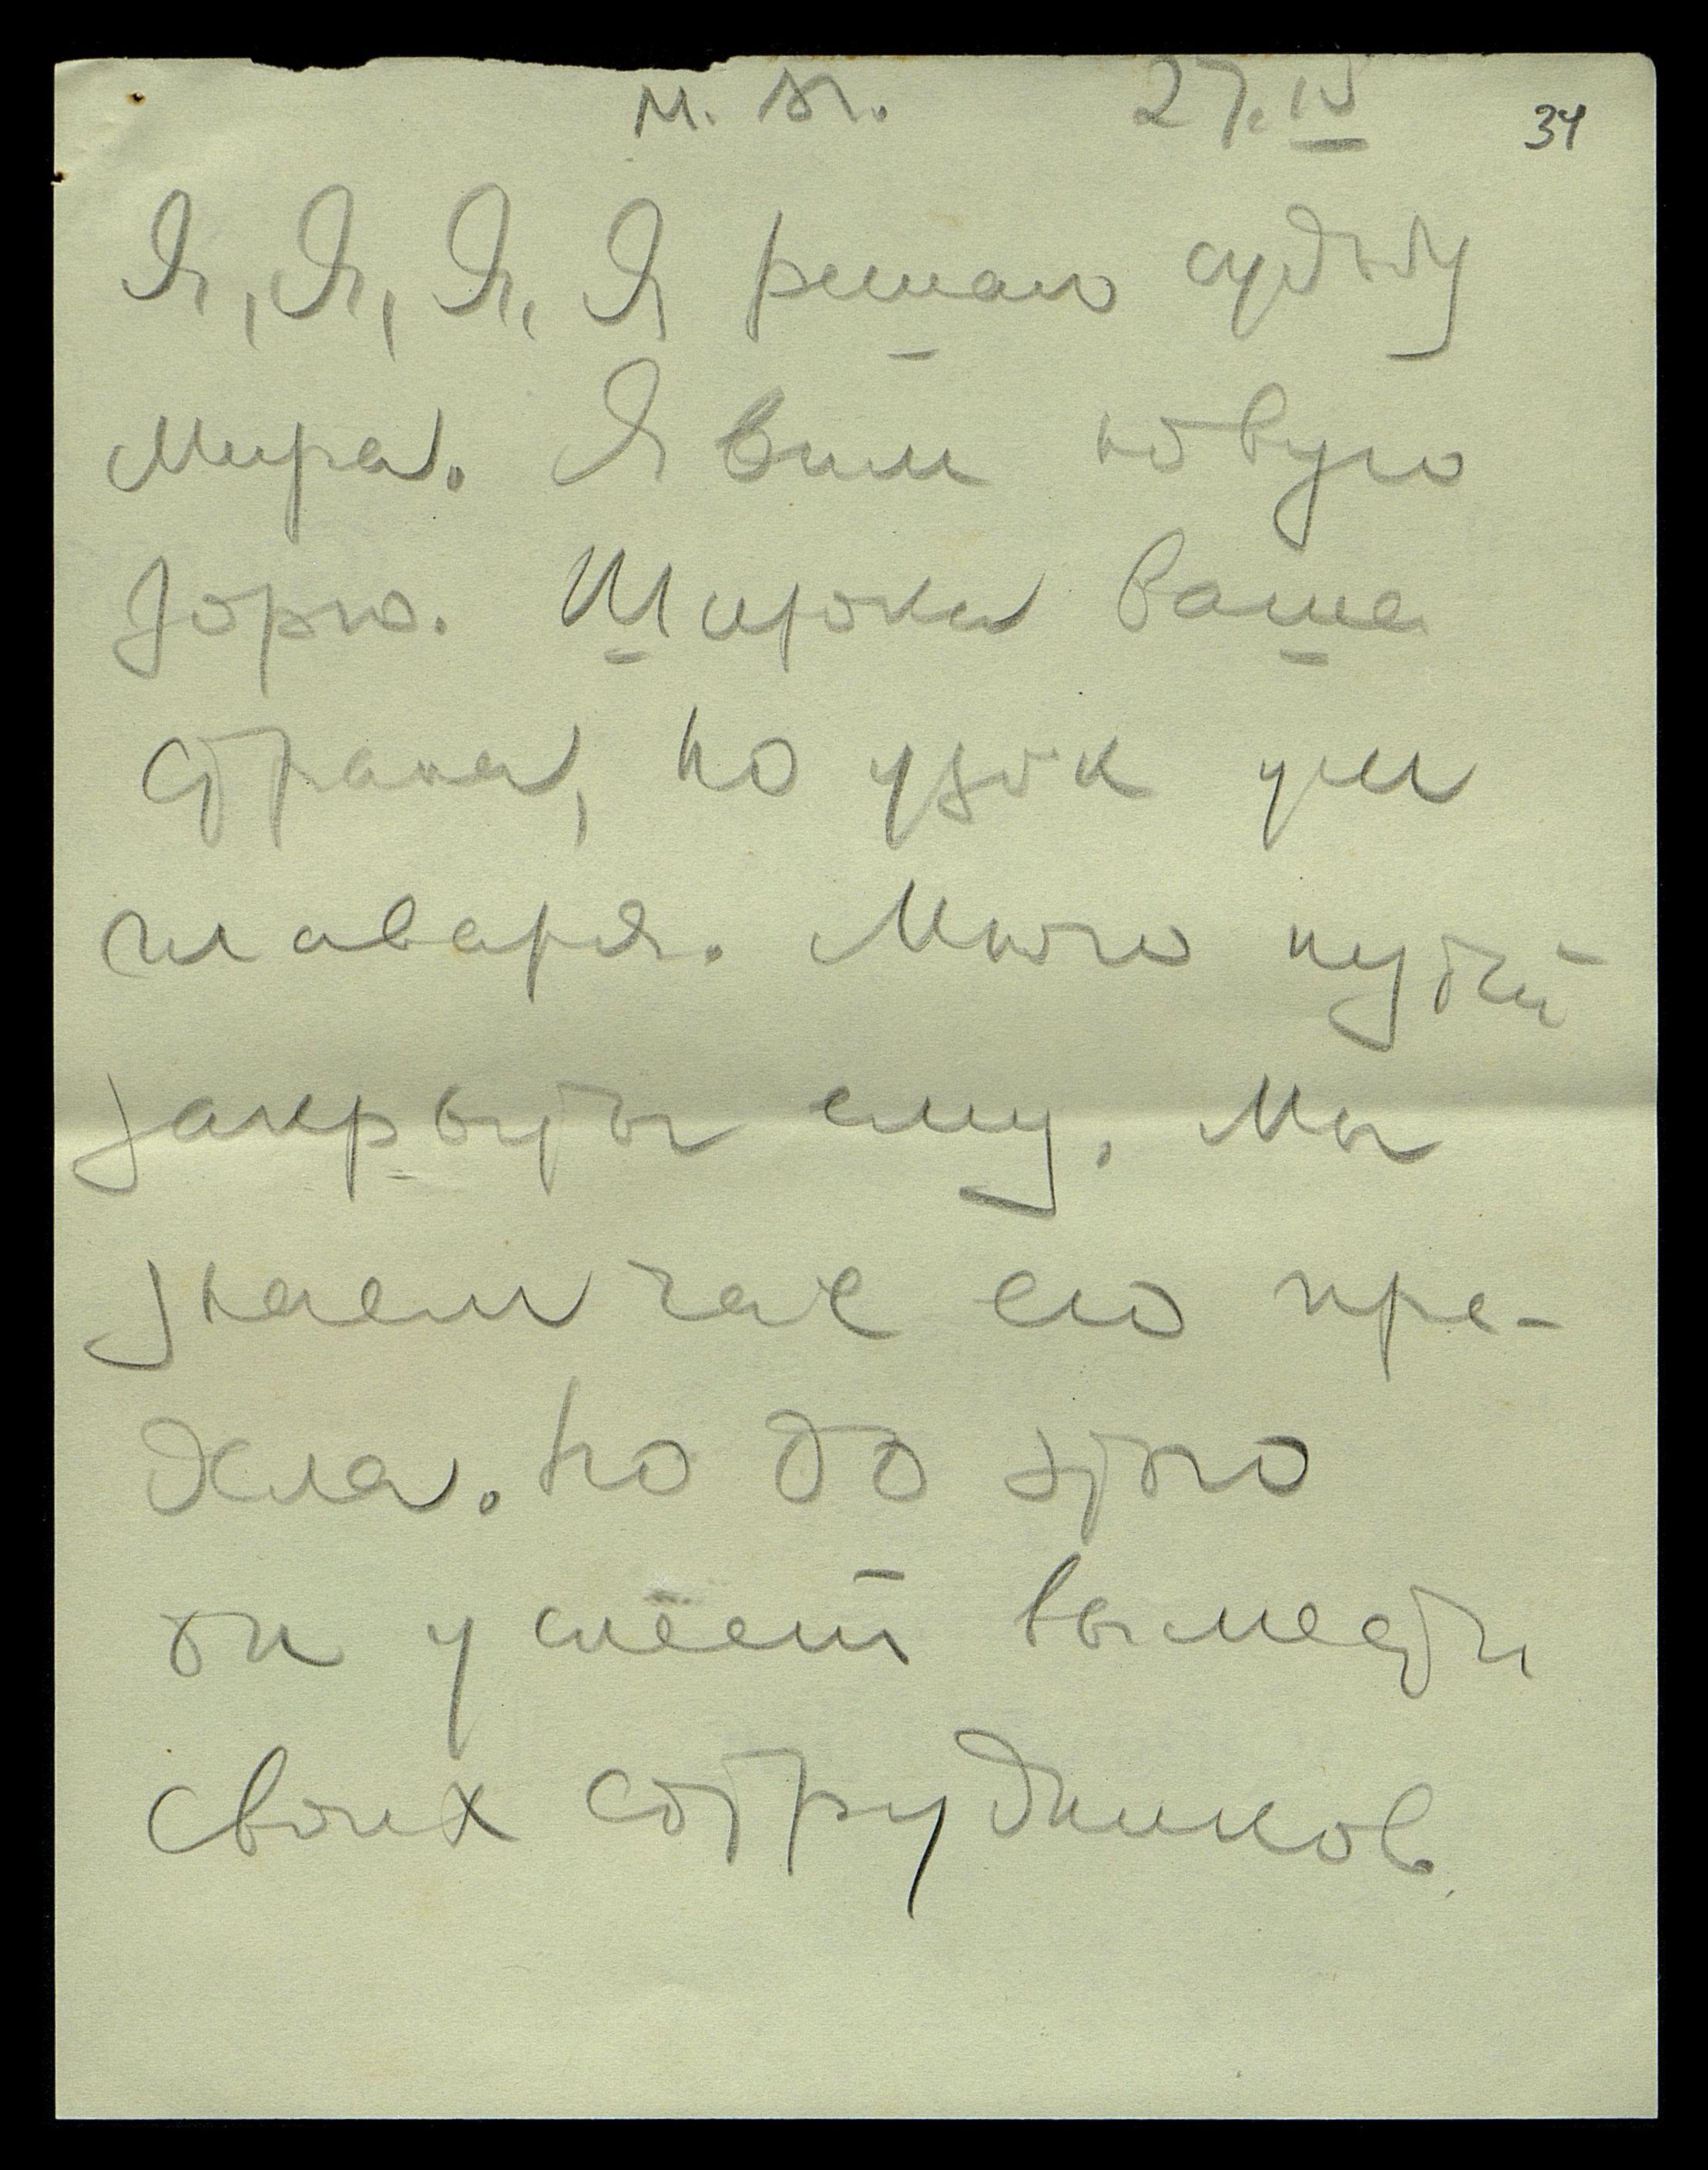 27.IV 34
Я, Я, Я, Я решаю судьбу
мира. Явим новую
зорю. Широка ваша
страна, но узок ум
главаря. Много путей
закрыты ему. Мы
знаем час его пре-
дела. Но до этого
он умеет вымести
своих сотрудников